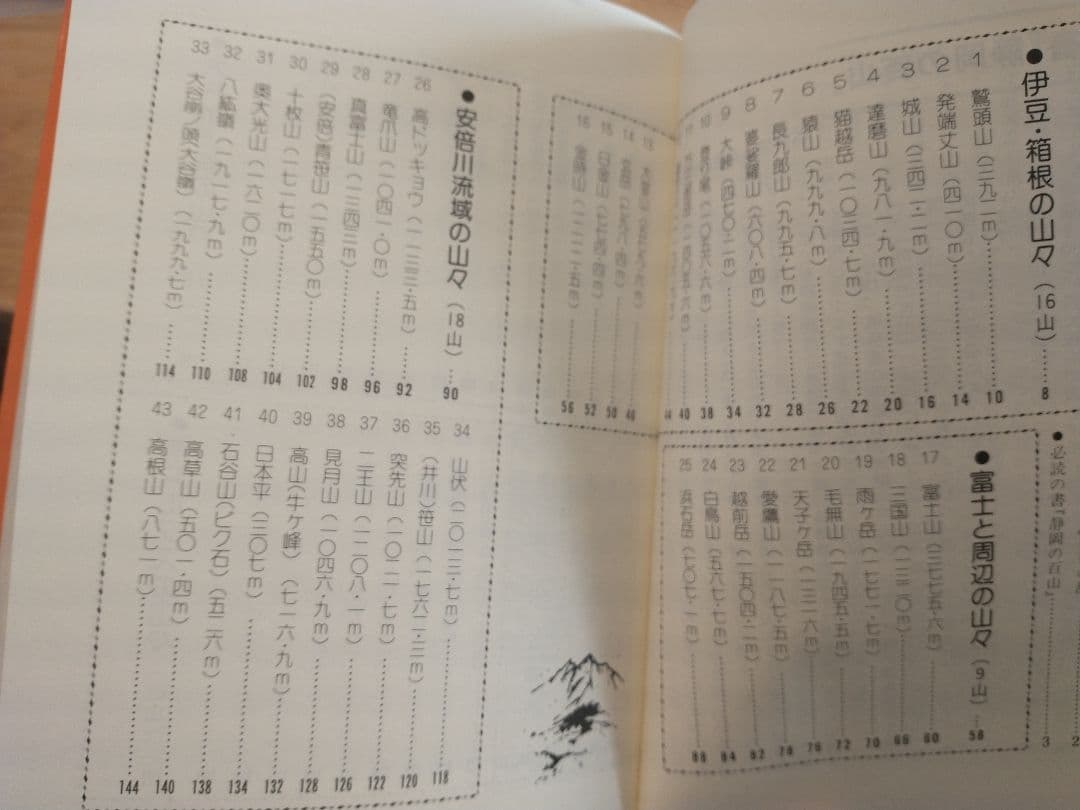 ●必読の書『静岡の百山』……3
●伊豆・箱根の山々（16山）……8
1 鷲頭山（三九二m）……10
2 発端丈山（四一〇m）……14
3 城山（三四二・二m）……16
4 達磨山（九八一・九m）……20
5 猫越岳（一〇三四・七m）……22
6 猿山（九九九・八m）……26
7 長九郎山（九九五・七m）……28
8 婆娑羅山（六〇八・四m）……32
9 大峠（四七〇・二m）……34
10 （一〇五六・六m）……38
11 ……40
14
15
16 金時山（一二一二・五m）……56
●富士と周辺の山々（9山）…58
17 富士山（三七七五・六m）……60
18 三国山（一三二〇m）……66
19 雨ヶ岳（一七七一・七m）……70
20 毛無山（一九四五・五m）……72
21 天子ヶ岳（一三一六m）……76
22 愛鷹山（一一八七・五m）……78
23 越前岳（一五〇四・二m）……82
24 白鳥山（五六七・七m）……84
25 浜石岳（七〇七・一m）……88
●安倍川流域の山々（18山）…90
26 高ドッキョウ（一一三三・五m）……92
27 竜爪山（一〇四一・〇m）……96
28 真富士山（一三四三m）……98
29 （安倍）青笹山（一五五〇m）……102
30 十枚山（一七一七m）……104
31 奥大光山（一六二〇m）……108
32 八紘嶺（一九一七・九m）……110
33 大谷崩ノ頭（大谷嶺）（一九九九・七m）……114
34 山伏（二〇一三・七m）……118
35 （井川）笹山（一七六三・三m）……120
36 突先山（一〇二一・七m）……122
37 二王山（一二〇八・一m）……126
38 見月山（一〇四六・九m）……128
39 高山（牛ケ峰）（七一六・九m）……132
40 日本平（三〇七m）……134
41 石谷山（ビク石）（五二六m）……138
42 高草山（五〇一・四m）……140
43 高根山（八七一m）……144